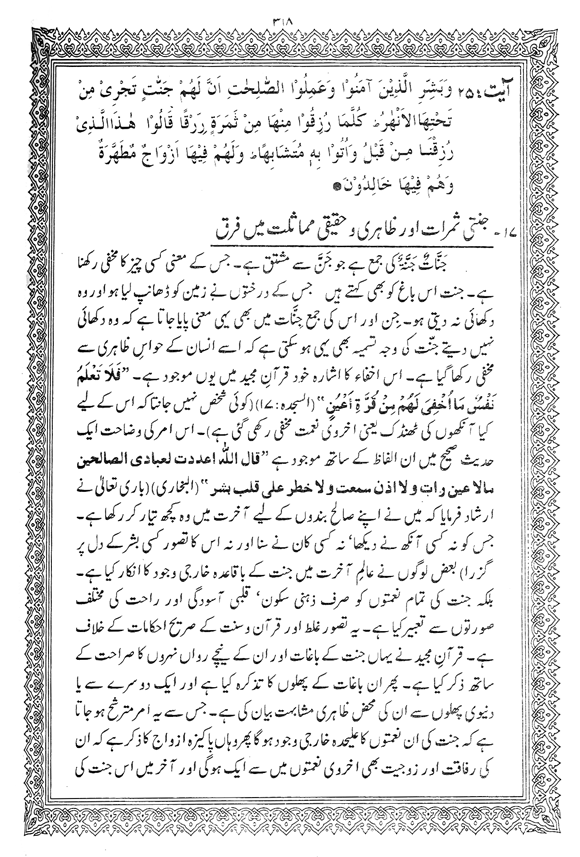 ۳۱۸
آیت۲۵: وَبَشِّرِ الَّذِیْنَ آمَنُوْا وَعَمِلُوا الصّٰلِحٰتِ اَنَّ لَهُمْ جَنّٰتٍ تَجْرِیْ مِنْ
تَحْتِهَا الْاَنْهٰرُ ؕ کُلَّمَا رُزِقُوْا مِنْهَا مِنْ ثَمَرَةٍ رِّزْقًا قَالُوْا هٰذَا الَّذِیْ
رُزِقْنَا مِنْ قَبْلُ وَاُتُوْا بِهٖ مُتَشَابِهًا ؕ وَلَهُمْ فِیْهَا اَزْوَاجٌ مُّطَهَّرَةٌ
وَهُمْ فِیْهَا خَالِدُوْنَ۝
۱۷- جنتی ثمرات اور ظاہری و حقیقی مماثلت میں فرق
جَنّاتٌ جَنَّةٌ کی جمع ہے جو جَنَّ سے مشتق ہے۔ جس کے معنی کسی چیز کا مخفی رکھنا
ہے۔ جنت اس باغ کو بھی کہتے ہیں جس کے درختوں نے زمین کو ڈھانپ لیا ہو اور وہ
دکھائی نہ دیتی ہو۔ جِن اور اس کی جمع جِنّات میں بھی یہی معنی پایا جاتا ہے کہ وہ دکھائی
نہیں دیتے جنّت کی وجہ تسمیہ بھی یہی ہو سکتی ہے کہ اسے انسان کے حواسِ ظاہری سے
مخفی رکھا گیا ہے۔ اس اخفاء کا اشارہ خود قرآن مجید میں یوں موجود ہے۔ ”فَلَا تَعْلَمُ
نَفْسٌ مَا اُخْفِیَ لَهُمْ مِنْ قُرَّةِ اَعْیُنٍ“ (السجدہ:۱۷) (کوئی شخص نہیں جانتا کہ اس کے لیے
کیا آنکھوں کی ٹھنڈک یعنی اخروی نعمت مخفی رکھی گئی ہے)۔ اس امر کی وضاحت ایک
حدیث صحیح میں ان الفاظ کے ساتھ موجود ہے ”قال اللّٰه اعددت لعبادی الصالحین
مالا عین رات ولا اذن سمعت ولا خطر علی قلب بشر“ (البخاری) (باری تعالیٰ نے
ارشاد فرمایا کہ میں نے اپنے صالح بندوں کے لیے آخرت میں وہ کچھ تیار کر رکھا ہے۔
جس کو نہ کسی آنکھ نے دیکھا‘ نہ کسی کان نے سنا اور نہ اس کا تصور کسی بشر کے دل پر
گزرا) بعض لوگوں نے عالمِ آخرت میں جنت کے باقاعدہ خارجی وجود کا انکار کیا ہے۔
بلکہ جنت کی تمام نعمتوں کو صرف ذہنی سکون‘ قلبی آسودگی اور راحت کی مختلف
صورتوں سے تعبیر کیا ہے۔ یہ تصور غلط اور قرآن و سنت کے صریح احکامات کے خلاف
ہے۔ قرآن مجید نے یہاں جنت کے باغات اور ان کے نیچے رواں نہروں کا صراحت کے
ساتھ ذکر کیا ہے۔ پھر ان باغات کے پھلوں کا تذکرہ کیا ہے اور ایک دوسرے سے یا
دنیوی پھلوں سے ان کی محض ظاہری مشابہت بیان کی ہے۔ جس سے یہ امر مترشح ہو جاتا
ہے کہ جنت کی ان نعمتوں کا علیحدہ خارجی وجود ہو گا پھر وہاں پاکیزہ ازواج کا ذکر ہے کہ ان
کی رفاقت اور زوجیت بھی اخروی نعمتوں میں سے ایک ہوگی اور آخر میں اس جنت کی